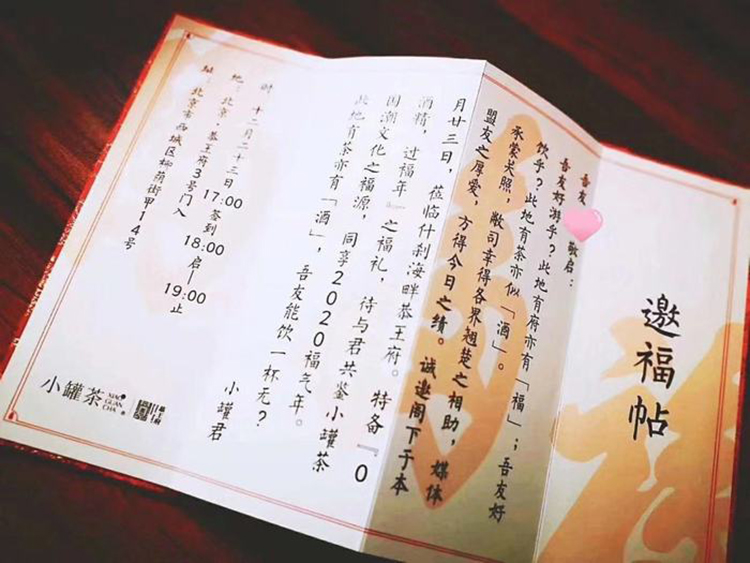 邀福帖
吾友 敬启：
吾友好游乎？此地有府亦有「福」；吾友好
饮乎？此地有茶亦似「酒」。
承蒙关照，敝司幸得各界翘楚之相助，媒体
盟友之厚爱，方得今日之绩。诚邀阁下于本
月廿三日，莅临什刹海畔恭王府。特备『0
酒精，过福年』之福礼，待与君共鉴小罐茶
国潮文化之福源，同享2020福气年。
此地有茶亦有「酒」，吾友能饮一杯无？
小罐君
时：十二月二十三日 17:00签到 18:00启—19:00止
地：北京·恭王府3号门入
址：北京市西城区柳荫街甲14号
小罐茶
XIAO
GUAN
CHA